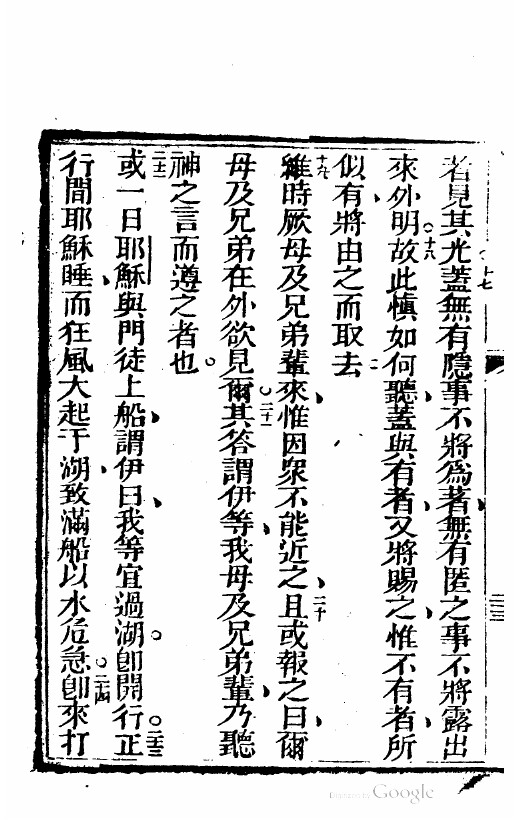 者見其光蓋無有隱事不將爲著無有匿之事不將露出
十七
來外明故此愼如何聽蓋與有者又將賜之惟不有者所
十八
似有將由之而取去
十九
維時厥母及兄弟輩來惟因衆不能近之且或報之曰爾
二十
母及兄弟在外欲見爾其答謂伊等我母及兄弟輩乃聽
二十一
神之言而遵之者也
二十二
或一日耶穌與門徒上船謂伊曰我等宜過湖卽開行正
二十三
行間耶穌睡而狂風大起于湖致滿船以水危急卽來打
二十四
Digitized by Google